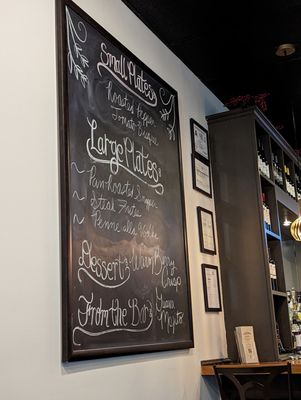 Small Plates:
Roasted Pepper
Tomato Bisque
Large Plates:
Pan-roasted Grouper
Steak Frites
Penne alla Vodka
Desserts: Warm Berry
Crisp
From the Bar: Guava
Mojito